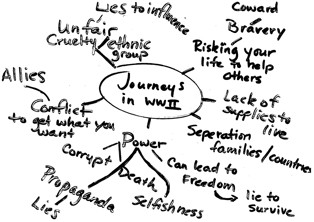 Lies to influence
Unfair
Cruelty
ethnic
group
Coward
Bravery
Risking your
life to help
others
Allies
Conflict
to get what you
want
Journeys
in WWII
Lack of
supplies to
live
Seperation
families/countries
Power
Corrupt
Propaganda
Lies
Death
Selfishness
Can lead to
Freedom
lie to
survive